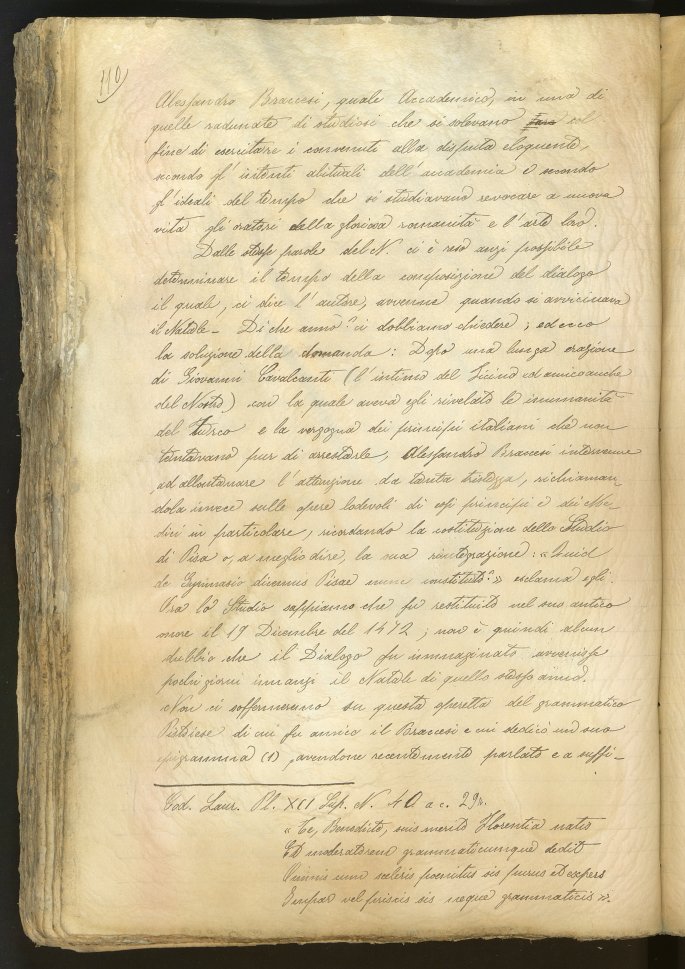 110)
Alessandro Braccesi, quale Accademico, in una di
quelle radunate di studiosi che si solevano fare col
fine di esercitare i convenuti alla disputa eloquente,
secondo gl'intenti abituali dell'accademia e secondo
gl'ideali del tempo che si studiavano revocare a nuova
vita gli oratori della gloriosa romanità e l'arte loro.
Dalle stesse parole del N. ci è reso anzi possibile
determinare il tempo della composizione del dialogo
il quale, ci dice l'autore, avvenne quando si avvicinava
il Natale - Di che anno? ci dobbiamo chiedere; ed ecco
la soluzione della domanda: Dopo una lunga orazione
di Giovanni Cavalcanti (l'intimo del Ficino ed amico anche
del Nostro) con la quale aveva egli rivelato le inumanità
del Turco e la vergogna dei principi italiani che non
tentavano pur di arrestarle, Alessandro Braccesi interviene
ad allontanare l'attenzione da tanta tristezza, richiaman-
dola invece sulle opere lodevoli di essi principi e dei Me-
dici in particolare, ricordando la costituzione dello Studio
di Pisa o, a meglio dire, la sua reintegrazione: «Quid
de Gymnasio dicemus Pisae nunc constituto?» esclama egli.
Ora lo Studio sappiamo che fu restituito nel suo antico
onore il 19 Dicembre del 1472; non è quindi alcun
dubbio che il Dialogo fu immaginato avvenisse
pochi giorni innanzi il Natale di quello stesso anno.
Non ci soffermeremo su questa operetta del grammatico
Pistoiese di cui fu amico il Braccesi e cui dedicò un suo
epigramma (1), avendone recentemente parlato e a suffi-
Cod. Laur. Pl. XCI Sup. N. 40 a c. 29
"Te, Benedicte, suis merito Florentia natis
Et moderatorem grammaticumque dedit
Omnis cum sceleris poenitus sis purus et expers
Impar vel priscis sis neque grammaticis».